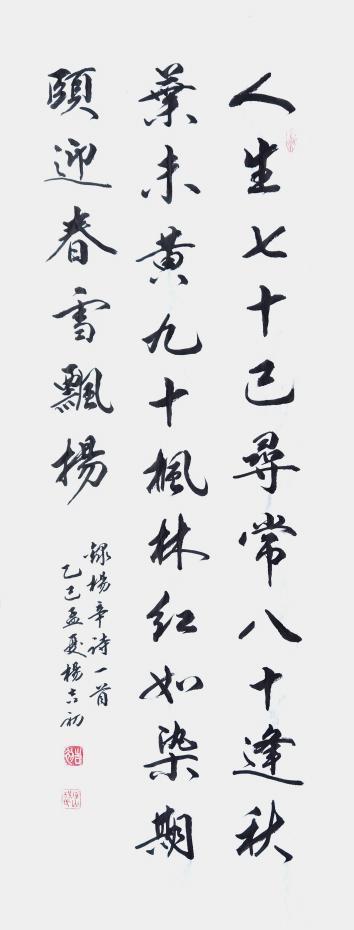 人生七十已尋常八十逢秋
葉未黄九十楓林紅如染期
頤迎春雪飄揚
録楊辛詩一首
乙巳孟夏楊吉初